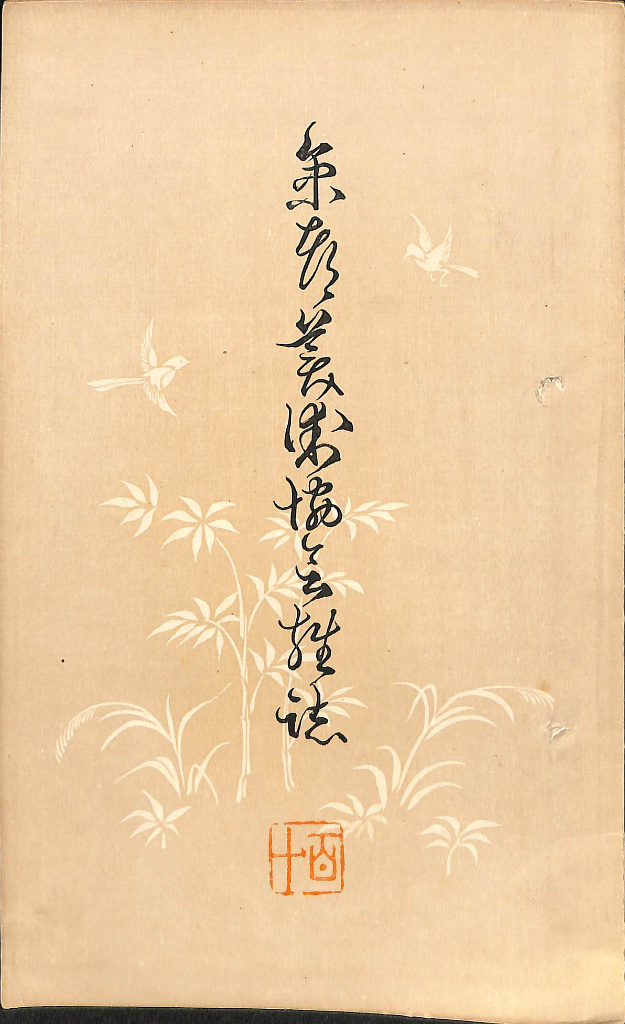 京都美術協会雑誌
百十